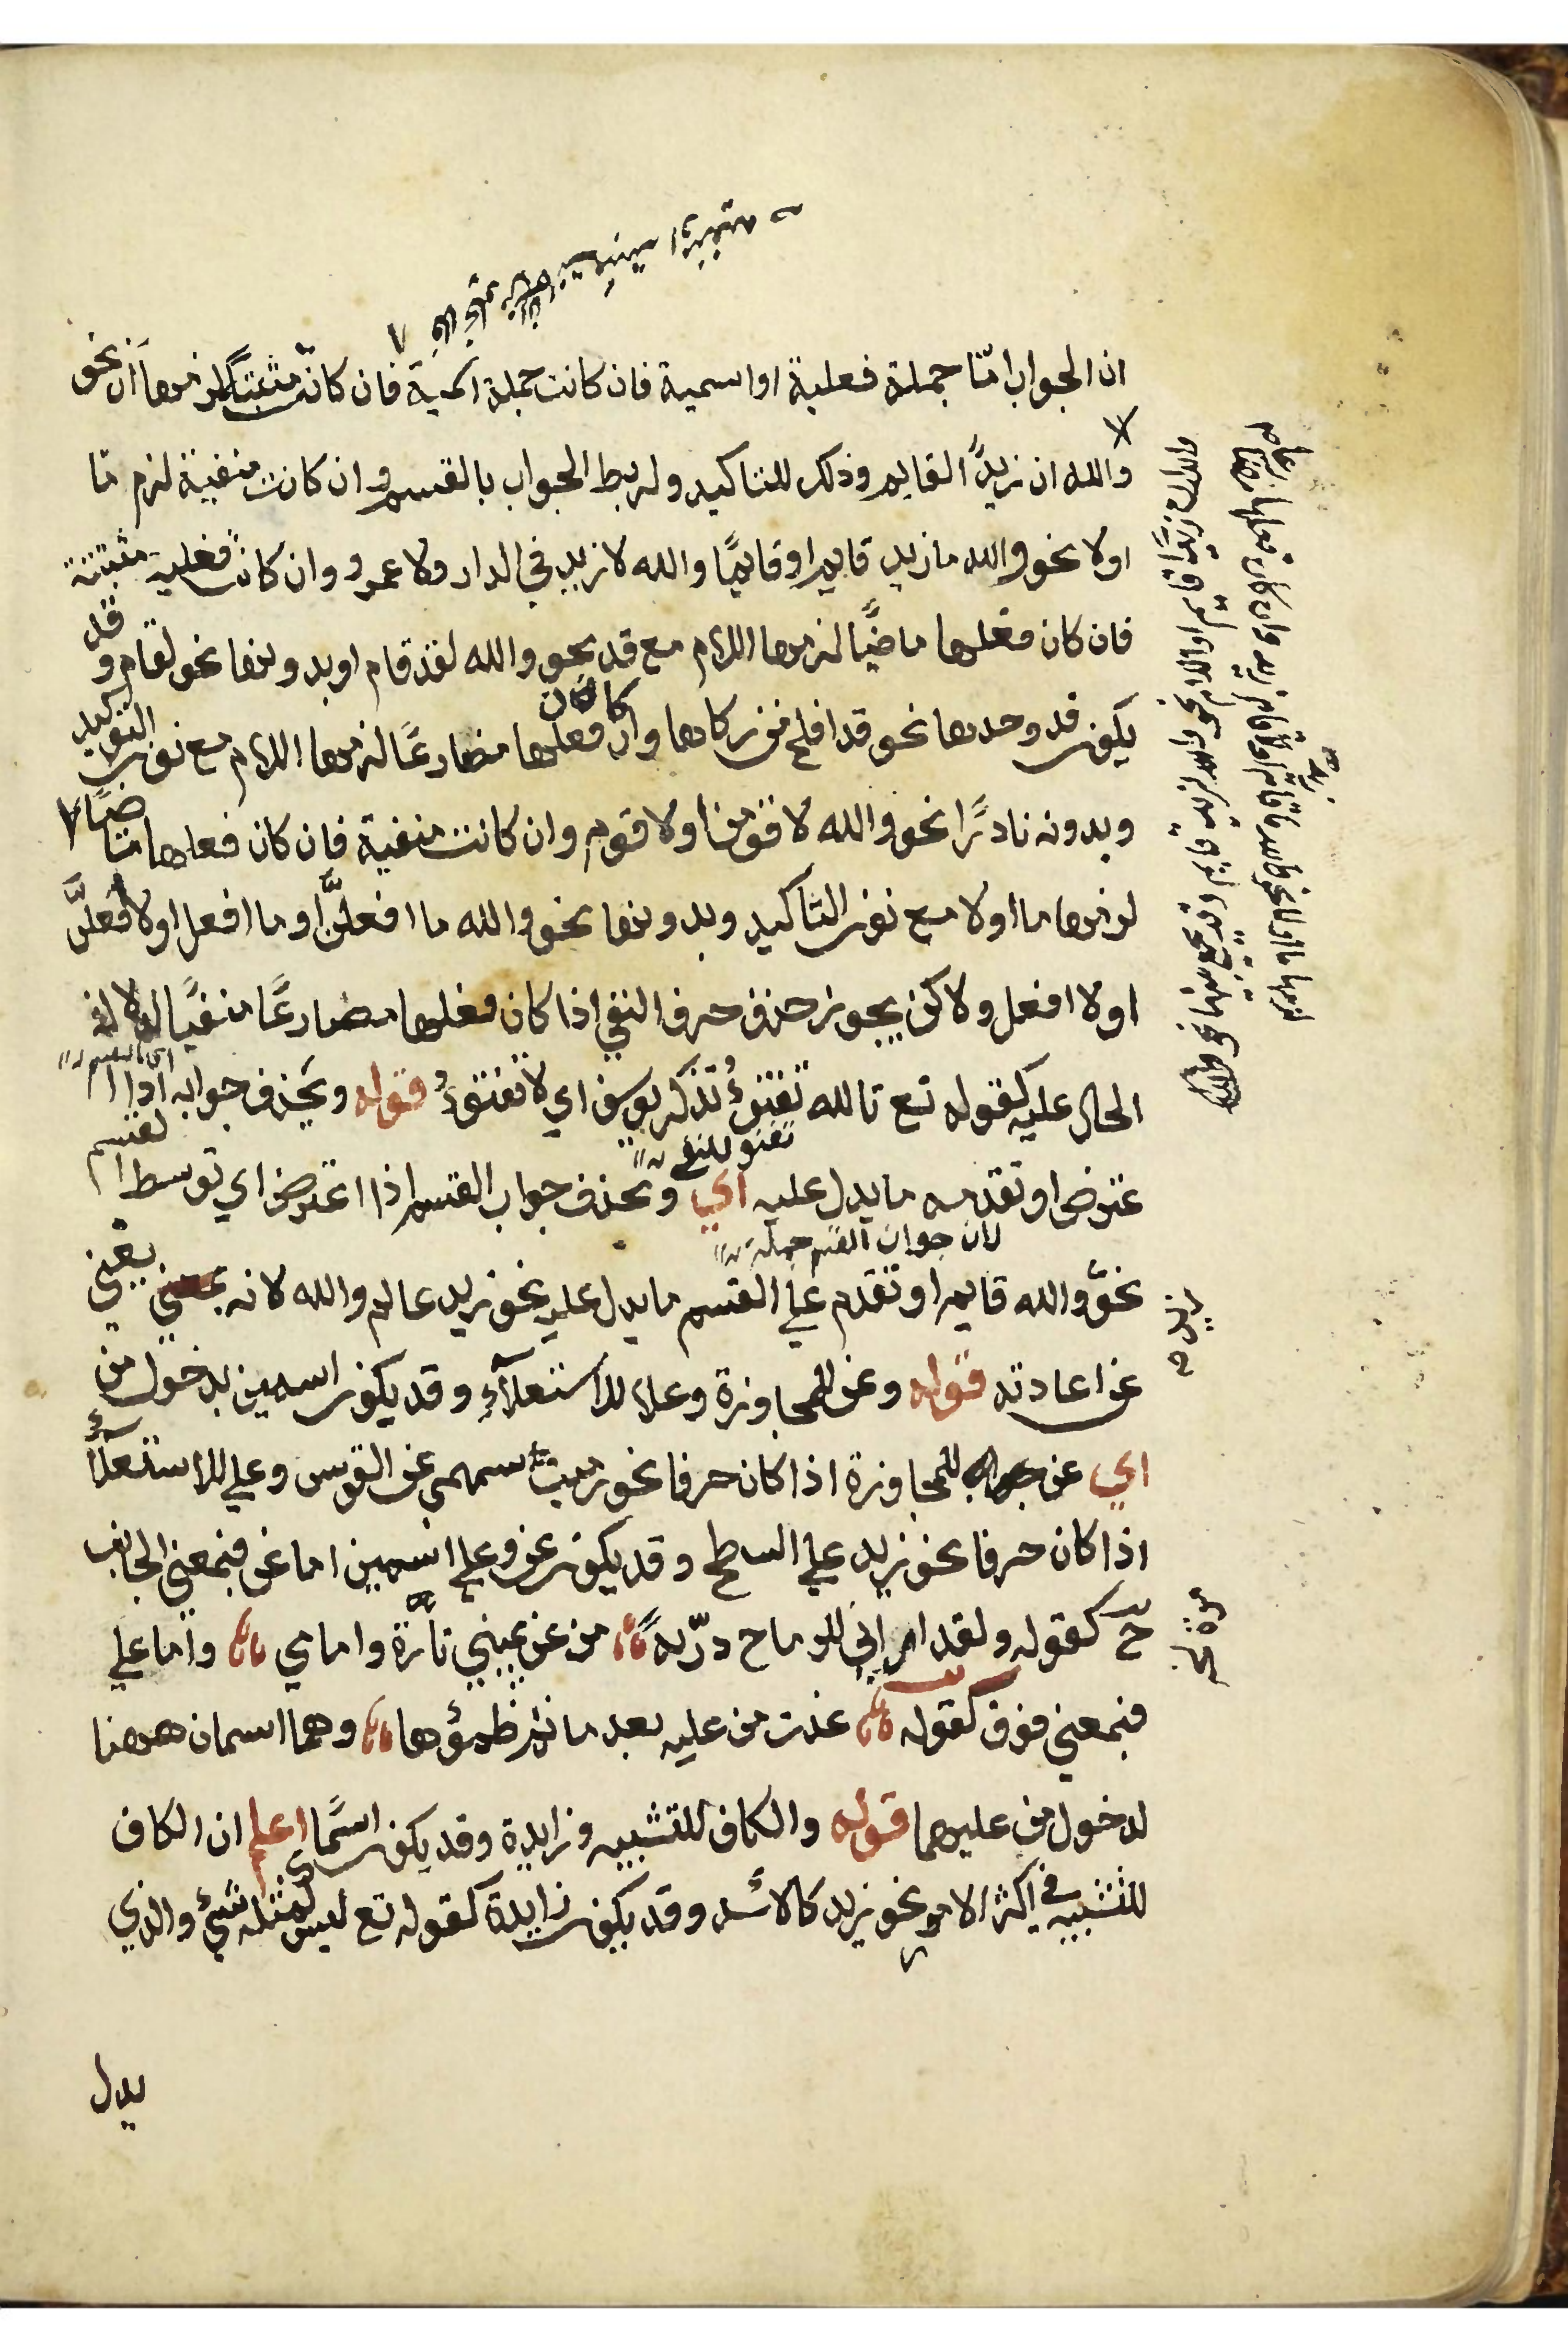 ان الجواب امّا جملة فعلية او اسمية فان كانت جملة اسمية فان كانت مثبتة لزمها ان نحو
والله ان زيدًا لقايم وذلك للتاكيد ولربط الجواب بالقسم وان كانت منفية لزم ما
اولا نحو والله ما زيد قايم او قايمًا والله لا زيد في الدار ولا عمرو وان كانت فعلية مثبتة
فان كان فعلها ماضيًا لزمها اللام مع قد نحو والله لقد قام او بدونها نحو لقام وقد
يكون قد وحدها نحو قد افلح من زكاها وان كان فعلها مضارعًا لزمها اللام مع نون التوكيد
وبدونه نادرًا نحو والله لاقومن او لاقوم وان كانت منفية فان كان فعلها ماضيًا
لزمها ما اولا مع نون التاكيد وبدونها نحو والله ما افعلنّ او ما افعل اولا افعلنّ
اولا افعل ولاكن يجوز حذف حرف النفي اذا كان فعلها مضارعًا منفيًا لدلالة
الحال عليه كقوله تع تالله تفتؤ تذكر يوسف اي لا تفتؤ قوله ويحذف جوابه اذا ا
عترض او تقدمه ما يدل عليه اي ويحذف جواب القسم اذا اعترض اي توسط القسم
نحو والله قايم او تقدم على القسم ما يدل عليه نحو زيد عالم والله لانه يغني
عن اعادته قوله وعن للمجاوزة وعلا للاستعلاء وقد يكون اسمين بدخول من
اي عن للمجاوزة اذا كان حرفا نحو رميت سهمي عن القوس وعلي للاستعلاء
اذا كان حرفا نحو زيد علي السطح وقد يكون عن وعلي اسمين اما عن فبمعني الجانب
ح كقوله ولقد اراني للرماح درّية من عن يميني تارة وامامي واما علي
فبمعني فوق كقوله غدت من عليه بعد ما تم ظمؤها وهما اسمان ههنا
لدخول من عليهما قوله والكاف للتشبيه وزايدة وقد يكون اسمًا اعلم ان الكاف
للتشبيه في اكثر الامر نحو زيد كالاسد وقد يكون زايدة كقوله تع ليس كمثله شيء والذي
يدل
لان جواب القسم جملة